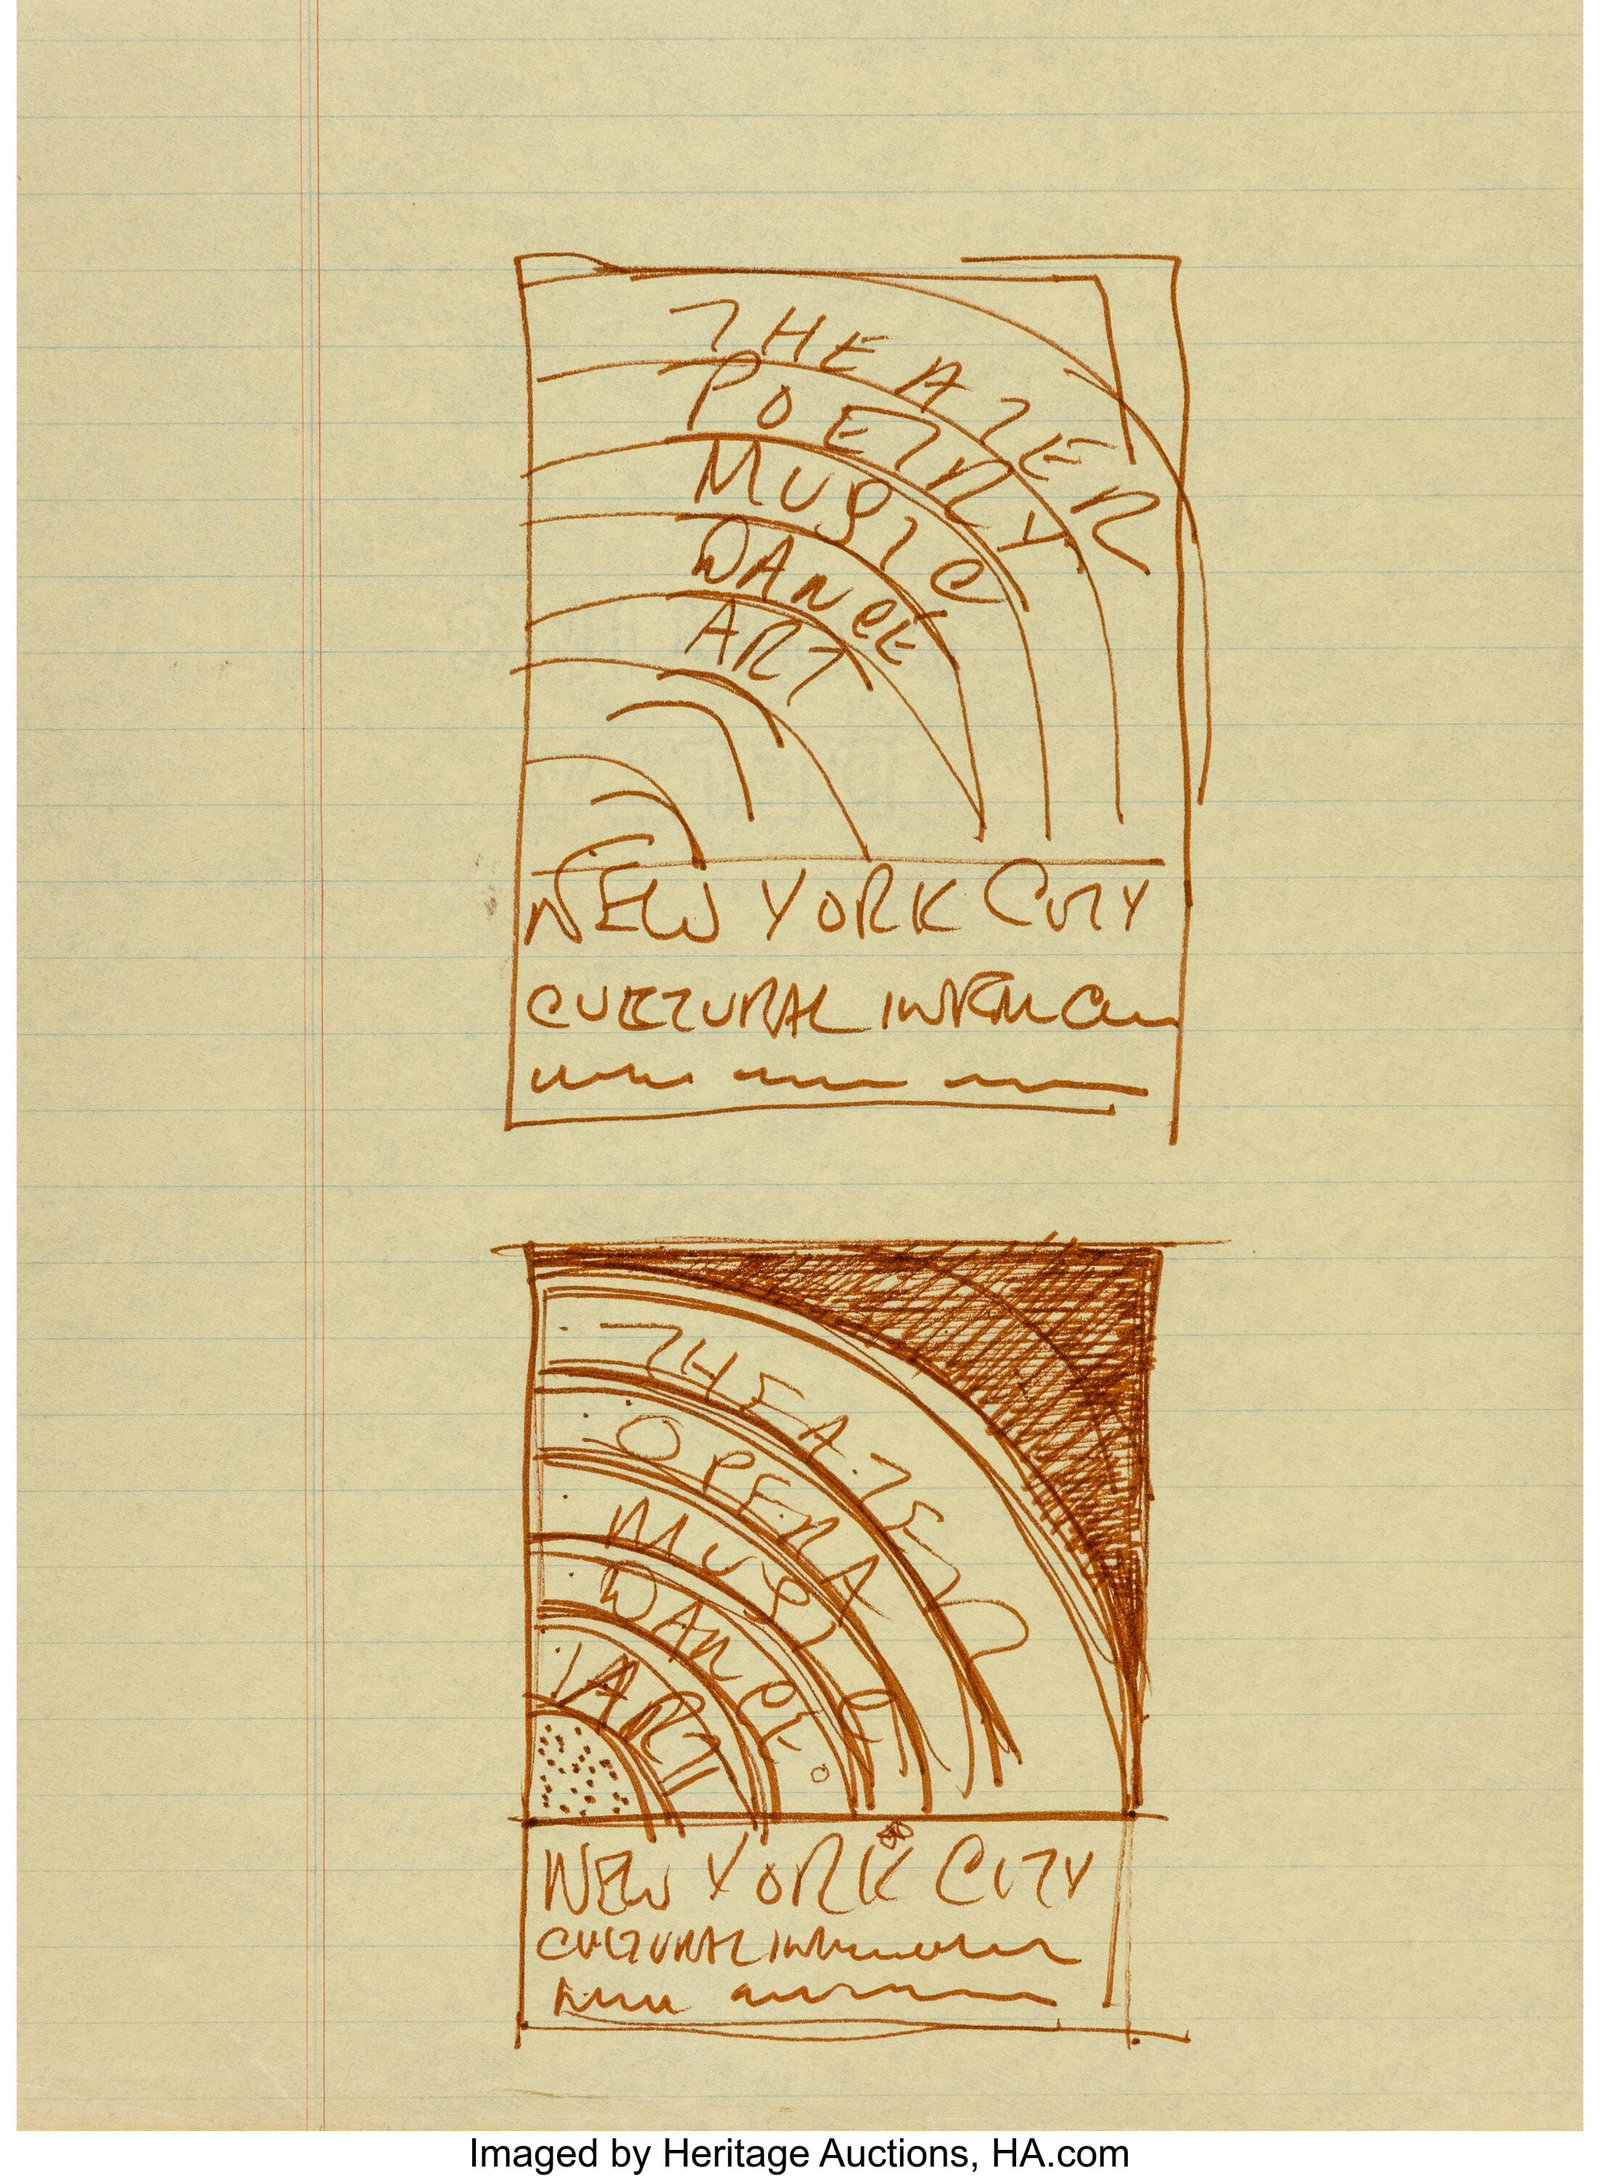 THEATER
POETRY
MUSIC
DANCE
ART
NEW YORK CITY
CULTURAL
THEATER
OPERA
MUSIC
DANCE
ART
NEW YORK CITY
CULTURAL
Imaged by Heritage Auctions, HA.com